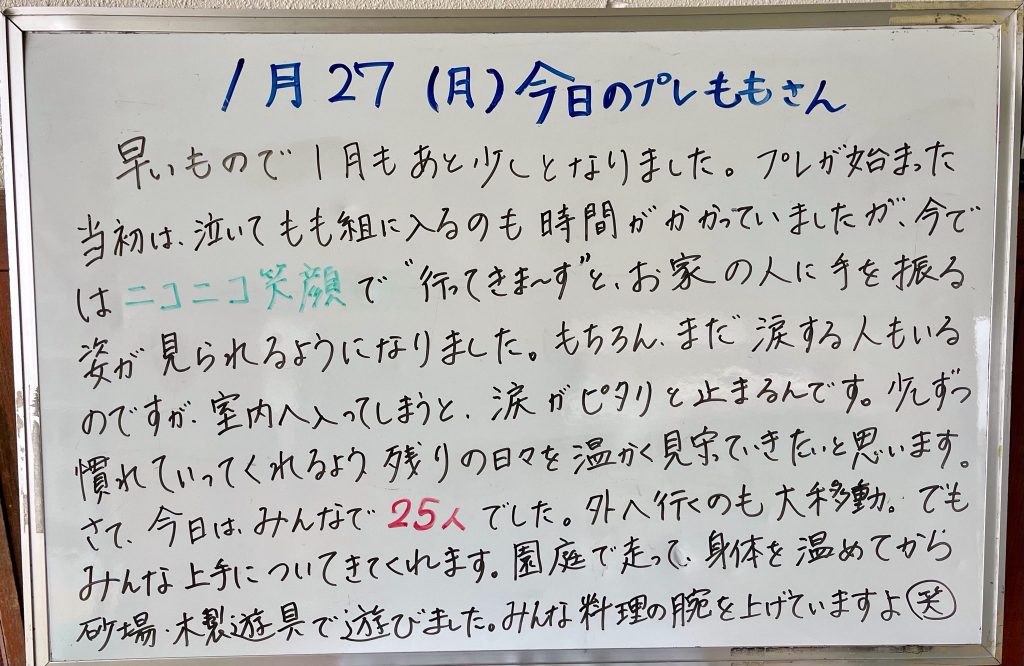 1月27(月)今日のプレももさん
早いもので1月もあと少しとなりました。プレが始まった
当初は、泣いてもも組に入るのも時間がかかっていましたが、今で
はニコニコ笑顔で"行ってきま〜す"と、お家の人に手を振る
姿が見られるようになりました。もちろん、まだ涙する人もいる
のですが、室内へ入ってしまうと、涙がピタリと止まるんです。少しずつ
慣れていってくれるよう残りの日々を温かく見守っていきたいと思います。
さて、今日は、みんなで25人でした。外へ行くのも大移動。でも
みんな上手についてきてくれます。園庭で走って、身体を温めてから
砂場・木製遊具で遊びました。みんな料理の腕を上げていますよ(笑)